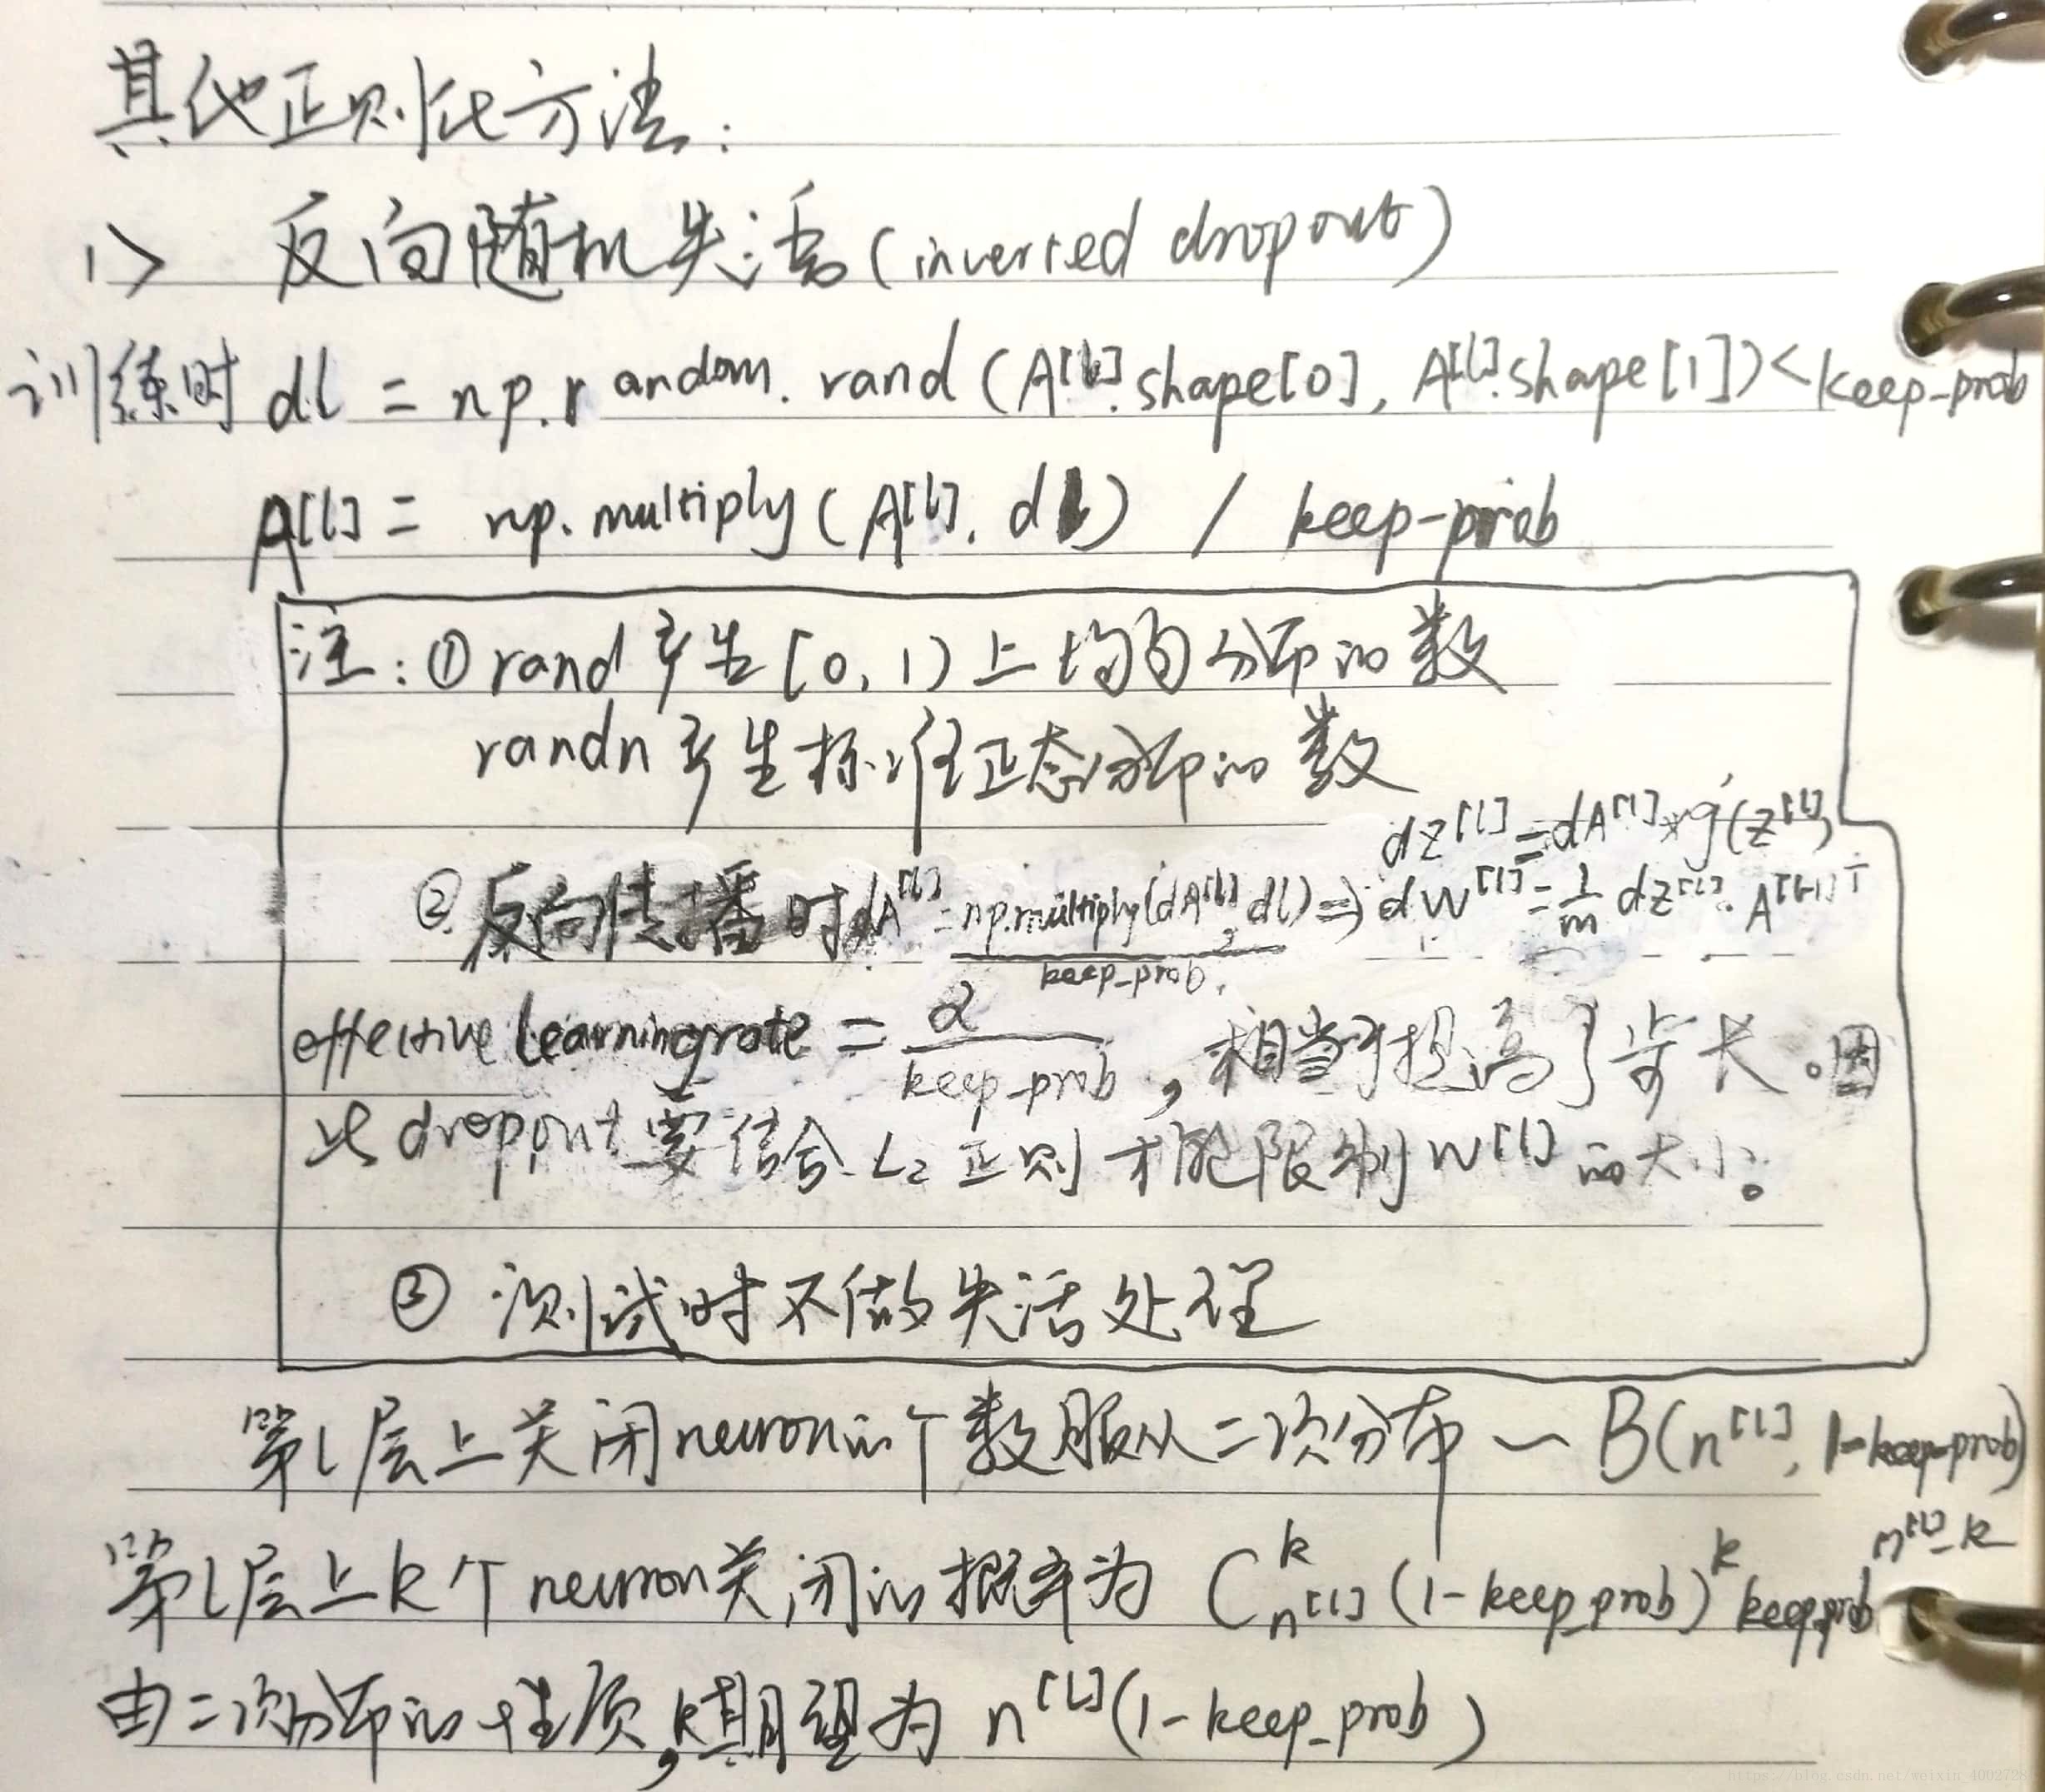 其他正则化方法:
1> 反向随机失活(inverted dropout)
训练时 dl = np.random.rand(A[l].shape[0], A[l].shape[1])<keep_prob
A[l] = np.multiply(A[l], dl) / keep-prob
注:①rand产生[0,1)上均匀分布的数
randn产生标准正态分布的数
dz[l]=dA[l]*g'(z[l])
②反向传播时dA[l]=np.multiply(dA[l],dl)/keep_prob ⇒ dW[l]=1/m dz[l]·A[l-1]T
effective learningrate = α/keep_prob,相当于提高了步长。因
此dropout要结合L2正则才能限制W[l]的大小。
③测试时不做失活处理
第l层上关闭neuron的个数服从二次分布~B(n[l],1-keep-prob)
第l层上k个neuron关闭的概率为 C_{n[l]}^k (1-keep_prob)^k keep_prob^{n[l]-k}
由二次分布的性质,k期望为 n[l](1-keep_prob)